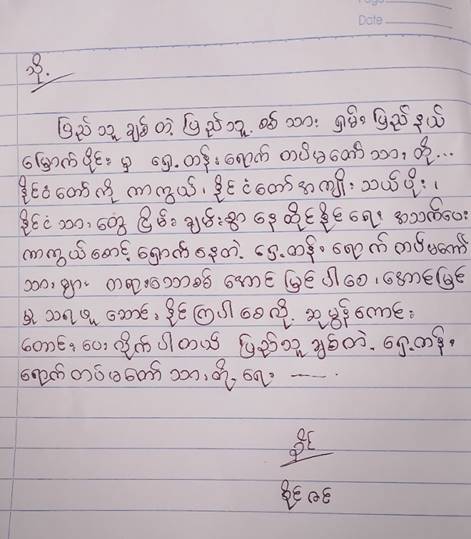 Page
Date
သို့
ပြည်သူ ချစ်တဲ့ ပြည်သူ့ စစ်သား ရှမ်း ပြည်နယ်
မြောက်ပိုင်း မှ ရှေ့တန်း ရောက် တပ်မတော်သား တို့...
နိုင်ငံတော်ကို ကာကွယ်၊ နိုင်ငံတော်အကျိုး သယ်ပိုး၊
နိုင်ငံသားတွေ ငြိမ်းချမ်းစွာ နေထိုင်နိုင်ရေး အသက်ပေး
ကာကွယ်စောင့်ရှောက်နေတဲ့ ရှေ့တန်းရောက်တပ်မတော်
သားများ တရားသောစစ် အောင်မြင်ပါစေ၊ အောင်မြင်
မှု သရဖူဆောင်းနိုင်ကြပါစေလို့ ဆုမွန်ကောင်း
တောင်းပေးလိုက်ပါတယ် ပြည်သူချစ်တဲ့ ရှေ့တန်း
ရောက်တပ်မတော်သားတို့ရေ —.
နိုင်
နိုင်ဇင်